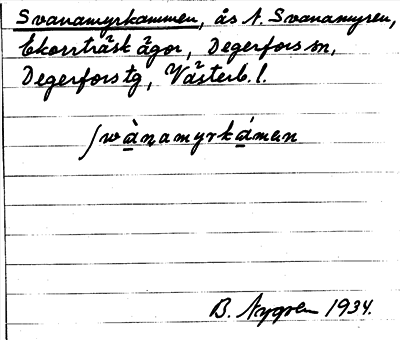 Svanamyrkammen, ås N. Svanamyren,
Ekorrträsk ägor, Degerfors sn,
Degerfors tg, Västerb. l.
ʃwànamyrkámen
B. Nygren 1934.